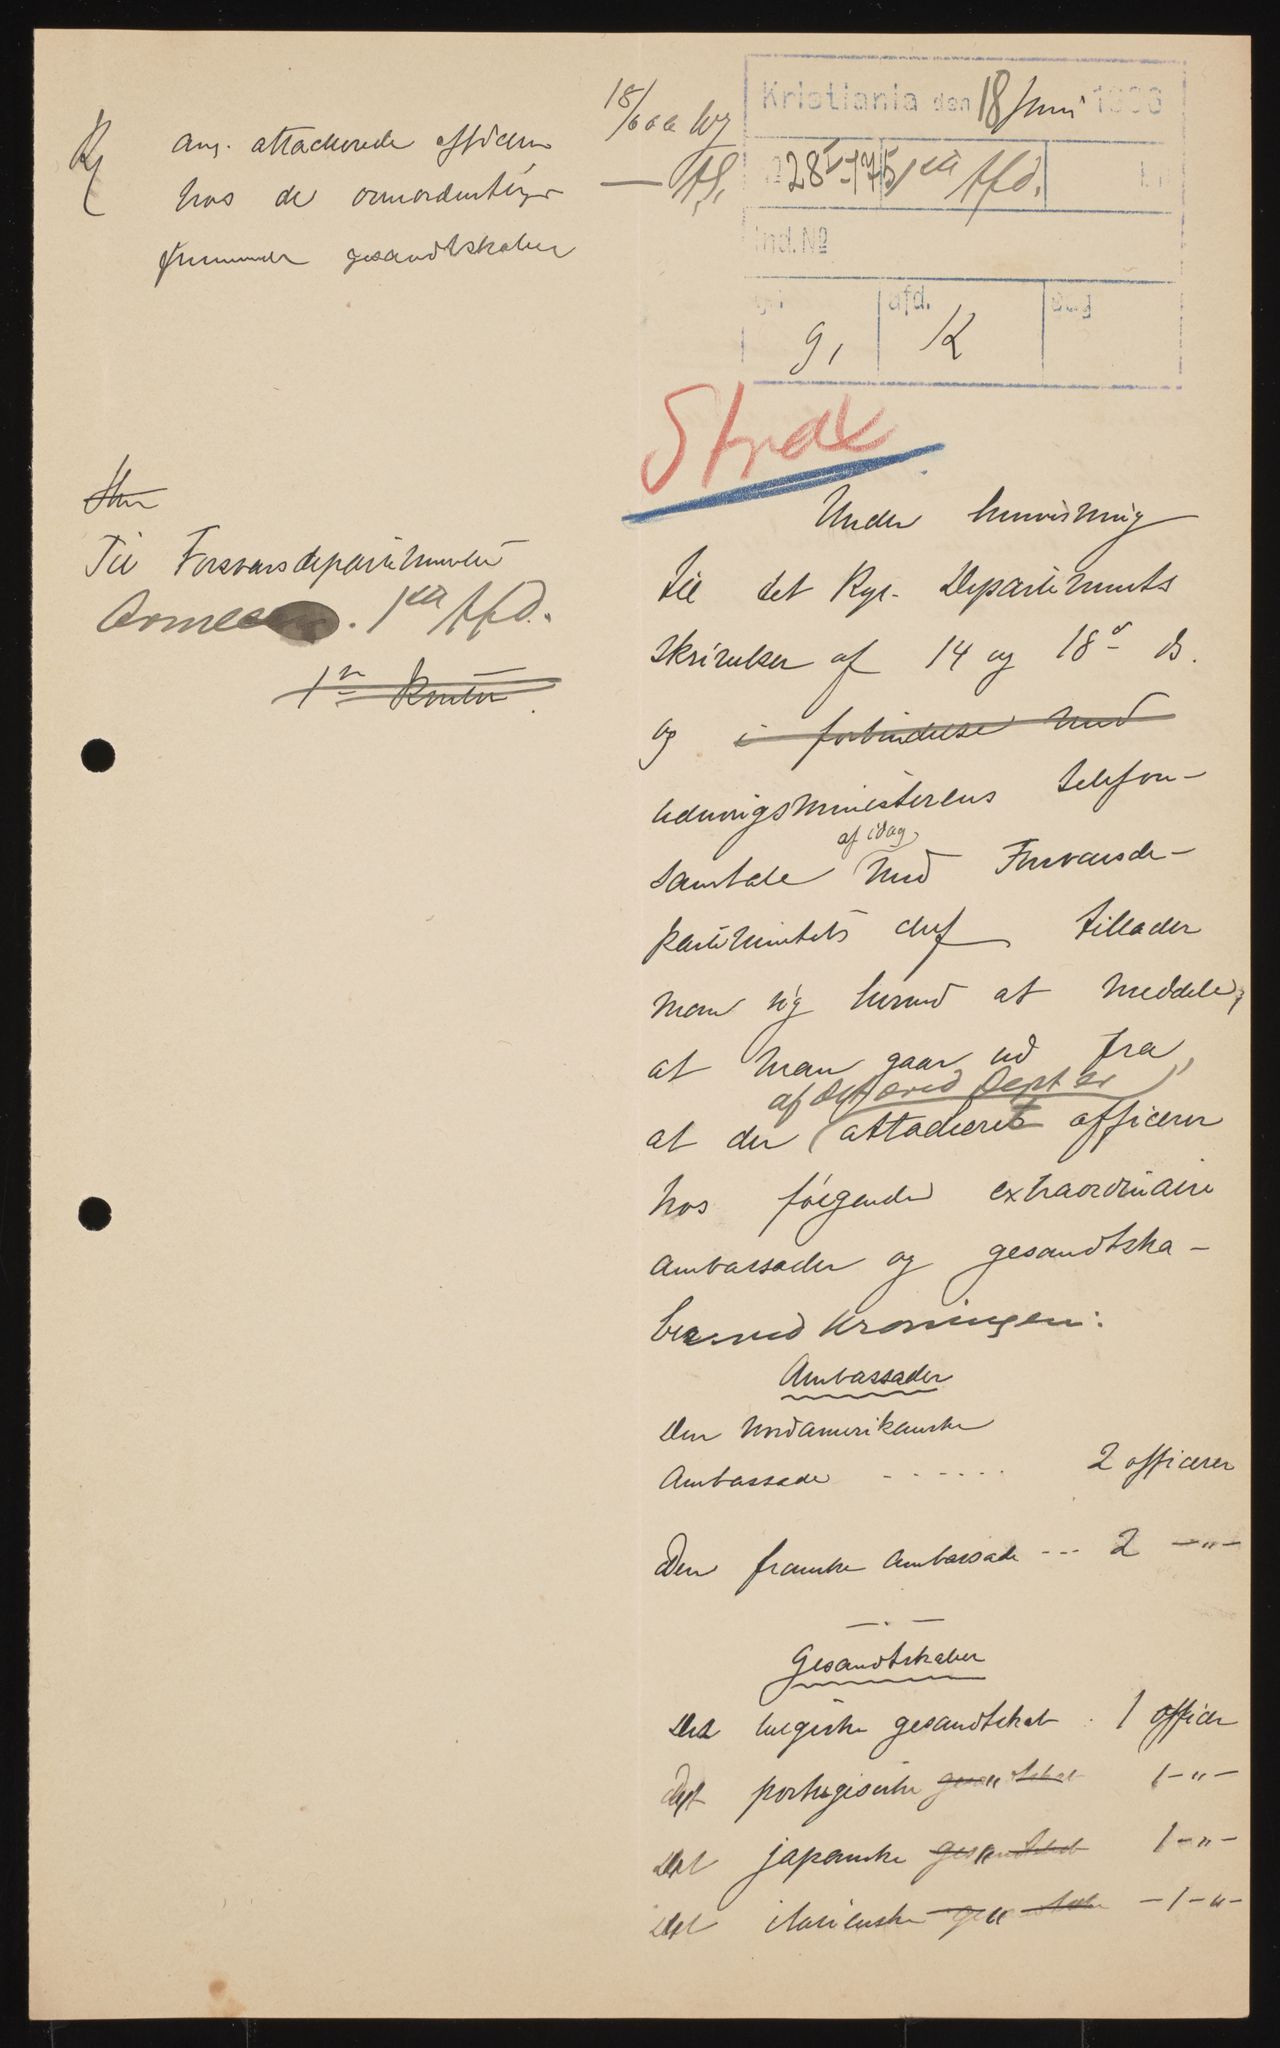 ang. attacherede officerer
hos de overordentlige
fremmede gesandtskaber
18/6 06 Wg
Kristiania den 18 Juni 1906
1ste Afd.
Ind. №
afd.
9, K
Strax
Den
Til Forsvarsdepartementet
1ste Afd.
1ste Kontor
Under henvisning
til det kgl. Departements
skrivelser af 14 og 18de ds.
og i forbindelse med
udenrigsministerens telefon-
af idag
samtale med Forsvarsde-
partementets chef tillader
man sig herved at meddele,
at man gaar ud fra,
af det ærede Dept er
at der attacheret officerer
hos følgende extraordinære
ambassader og gesandtska-
ber ved kroningen:
Ambassader
Den nordamerikanske
Ambassade - - - - - - 2 officerer
Den franske ambassade --- 2 -"-
Gesandtskaber
Det belgiske gesandtskab . 1 officer
Det portugisiske gesandtskab " 1 -"-
Det japanske gesandtskab " 1 -"-
Det italienske gesandtskab " - 1 -"-